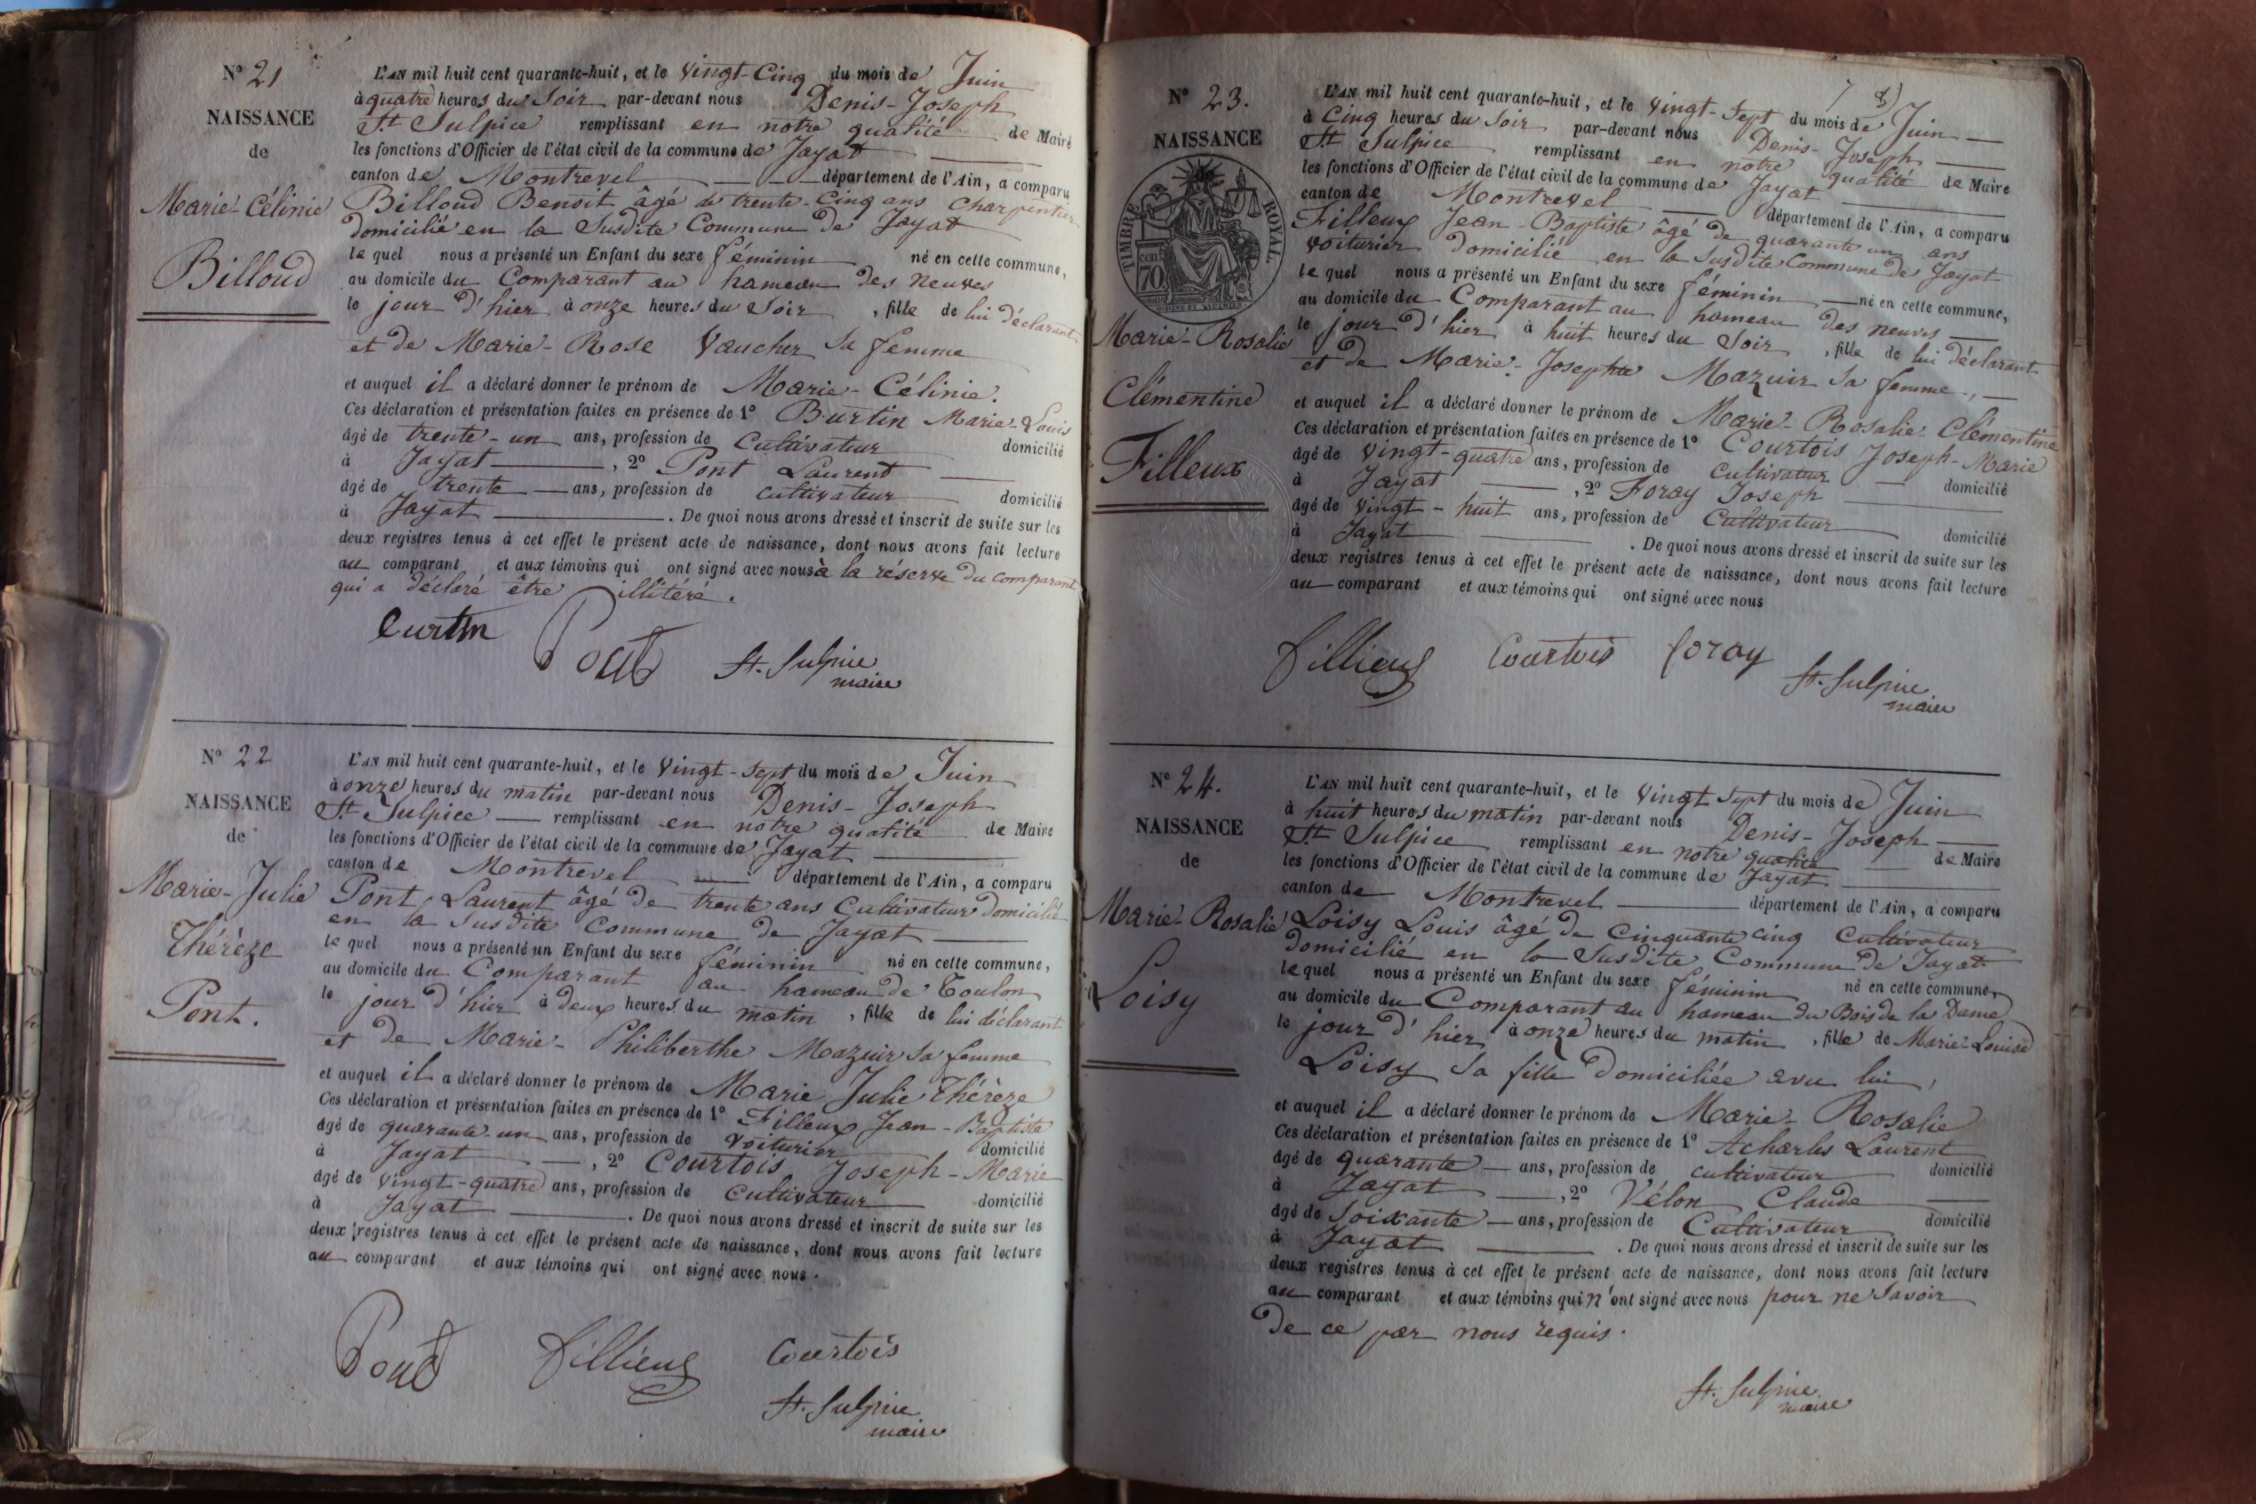 N° 21
NAISSANCE
de
Marie-Célinie
Billoud
L'AN mil huit cent quarante-huit, et le Vingt-Cinq du mois de Juin
à quatre heures du Soir par-devant nous Denis-Joseph
St Sulpice remplissant en notre qualité de Maire
les fonctions d'Officier de l'état civil de la commune de Jayat
canton de Montrevel département de l'Ain, a comparu
Billoud Benoit âgé de trente-Cinq ans Charpentier
domicilié en la Susdite Commune de Jayat
le quel nous a présenté un Enfant du sexe féminin né en cette commune,
au domicile du Comparant au hameau des Neuves
le jour d'hier à onze heures du Soir, fille de lui déclarant
et de Marie-Rose Vaucher sa femme
et auquel il a déclaré donner le prénom de Marie-Célinie.
Ces déclaration et présentation faites en présence de 1° Burtin Marie-Louis
âgé de trente-un ans, profession de Cultivateur domicilié
à Jayat, 2° Pont Laurent
âgé de trente ans, profession de cultivateur domicilié
à Jayat. De quoi nous avons dressé et inscrit de suite sur les
deux registres tenus à cet effet le présent acte de naissance, dont nous avons fait lecture
au comparant et aux témoins qui ont signé avec nous à la réserve du comparant
qui a déclaré être illitéré.
Curtin Pont St. Sulpice
maire
N° 22
NAISSANCE
de
Marie-Julie
Thérèze
Pont.
L'AN mil huit cent quarante-huit, et le Vingt-Sept du mois de Juin
à onze heures du matin par-devant nous Denis-Joseph
St Sulpice remplissant en notre qualité de Maire
les fonctions d'Officier de l'état civil de la commune de Jayat
canton de Montrevel département de l'Ain, a comparu
Pont Laurent âgé de trente ans Cultivateur domicilié
en la Susdite Commune de Jayat
le quel nous a présenté un Enfant du sexe féminin né en cette commune,
au domicile du Comparant au hameau de Toulon
le jour d'hier à deux heures du matin, fille de lui déclarant
et de Marie-Philiberthe Mazuir sa femme
et auquel il a déclaré donner le prénom de Marie Julie Thérèze
Ces déclaration et présentation faites en présence de 1° Filleux Jean-Baptiste
âgé de quarante-un ans, profession de Voiturier domicilié
à Jayat, 2° Courtois Joseph-Marie
âgé de Vingt-quatre ans, profession de Cultivateur domicilié
à Jayat. De quoi nous avons dressé et inscrit de suite sur les
deux registres tenus à cet effet le présent acte de naissance, dont nous avons fait lecture
au comparant et aux témoins qui ont signé avec nous.
Pont Fillieux Courtois
St. Sulpice
maire
7
N° 23.
NAISSANCE
de
TIMBRE ROYAL
70
Marie-Rosalie
Clémentine
Filleux
L'AN mil huit cent quarante-huit, et le Vingt-Sept du mois de Juin
à Cinq heures du Soir par-devant nous Denis-Joseph
St Sulpice remplissant en notre qualité de Maire
les fonctions d'Officier de l'état civil de la commune de Jayat
canton de Montrevel département de l'Ain, a comparu
Filleux Jean-Baptiste âgé de quarante un ans
Voiturier domicilié en la Susdite Commune de Jayat
le quel nous a présenté un Enfant du sexe féminin né en cette commune,
au domicile du Comparant au hameau des Neuves
le jour d'hier à huit heures du Soir, fille de lui déclarant
et de Marie-Josephte Mazuir sa femme,
et auquel il a déclaré donner le prénom de Marie-Rosalie-Clémentine
Ces déclaration et présentation faites en présence de 1° Courtois Joseph-Marie
âgé de Vingt-quatre ans, profession de Cultivateur domicilié
à Jayat, 2° Foray Joseph
âgé de Vingt-huit ans, profession de Cultivateur domicilié
à Jayat. De quoi nous avons dressé et inscrit de suite sur les
deux registres tenus à cet effet le présent acte de naissance, dont nous avons fait lecture
au comparant et aux témoins qui ont signé avec nous
Fillieux Courtois foray St. Sulpice
maire
N° 24.
NAISSANCE
de
Marie-Rosalie
Loisy
L'AN mil huit cent quarante-huit, et le Vingt Sept du mois de Juin
à huit heures du matin par-devant nous Denis-Joseph
St Sulpice remplissant en notre qualité de Maire
les fonctions d'Officier de l'état civil de la commune de Jayat
canton de Montrevel département de l'Ain, a comparu
Loisy Louis âgé de Cinquante cinq Cultivateur
domicilié en la Susdite Commune de Jayat
le quel nous a présenté un Enfant du sexe féminin né en cette commune,
au domicile du Comparant au hameau du Bois de la Dame
le jour d'hier à onze heures du matin, fille de Marie-Louise
Loisy sa fille domiciliée avec lui,
et auquel il a déclaré donner le prénom de Marie-Rosalie
Ces déclaration et présentation faites en présence de 1° Acharles Laurent
âgé de quarante ans, profession de cultivateur domicilié
à Jayat, 2° Vélon Claude
âgé de Soixante ans, profession de Cultivateur domicilié
à Jayat. De quoi nous avons dressé et inscrit de suite sur les
deux registres tenus à cet effet le présent acte de naissance, dont nous avons fait lecture
au comparant et aux témoins qui n'ont signé avec nous pour ne Savoir
de ce par nous requis.
St. Sulpice
maire